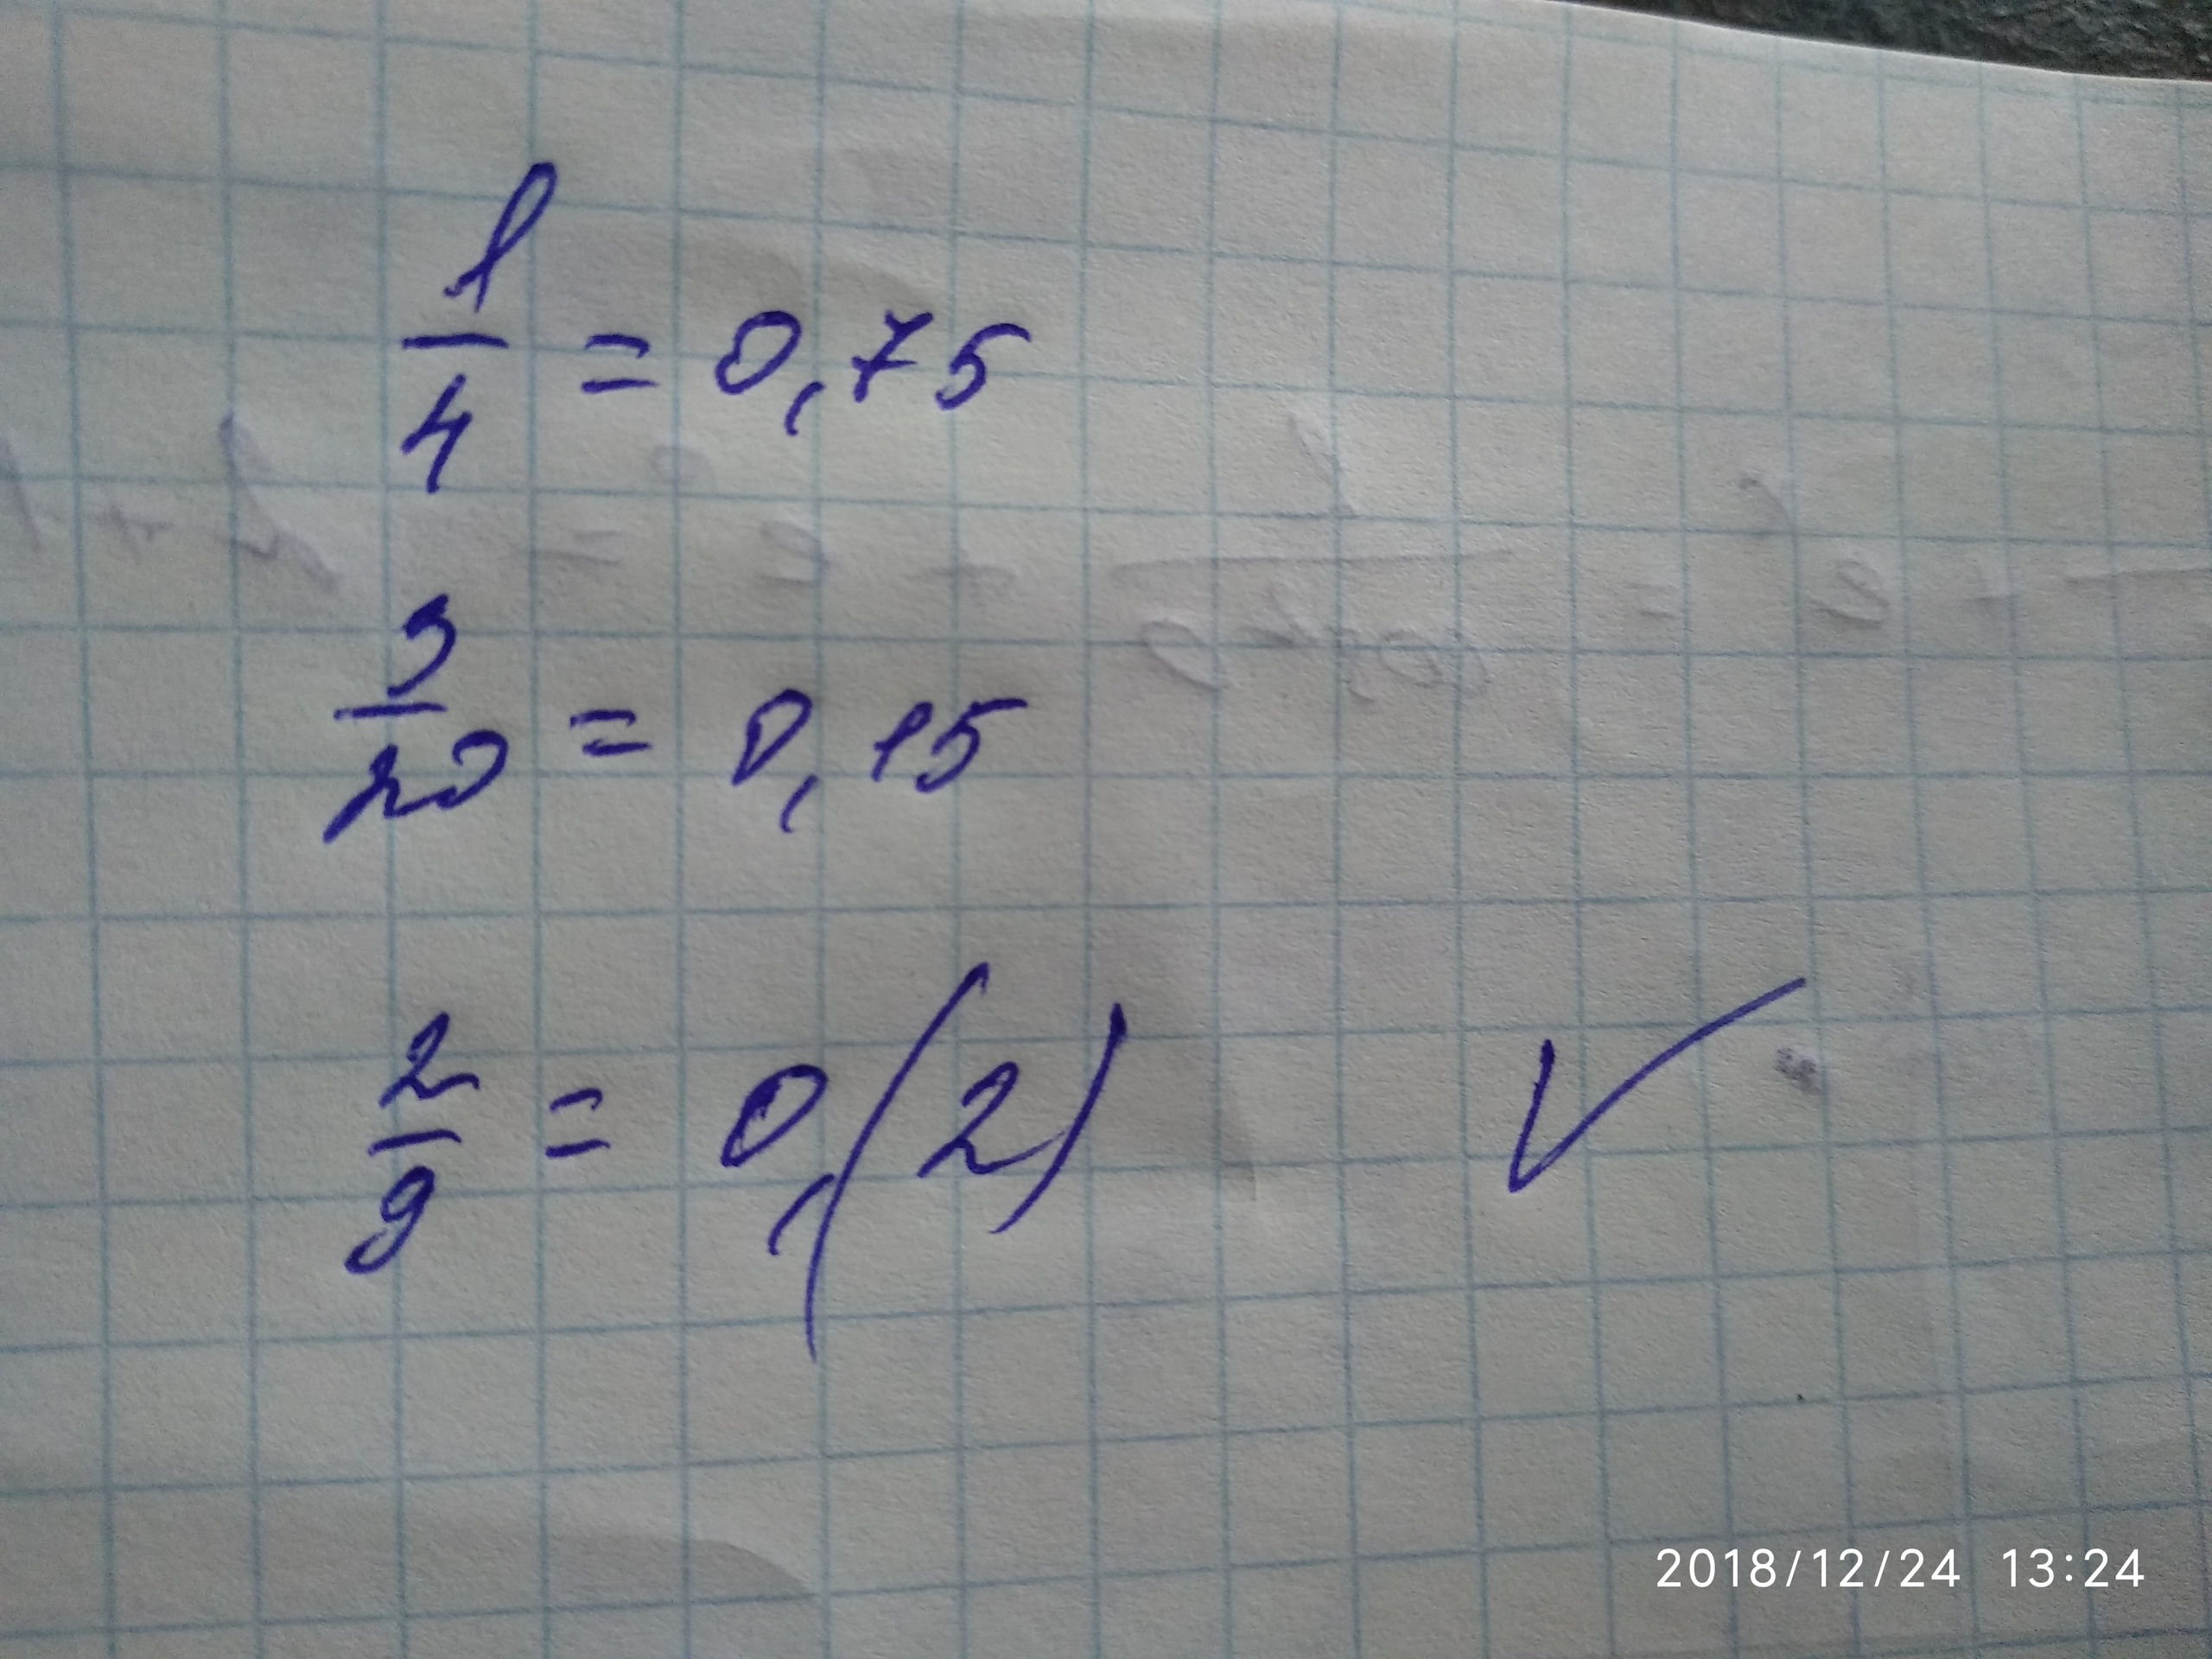 1/4 = 0,75
3/20 = 0,15
2/9 = 0,(2) ✓
2018/12/24 13:24